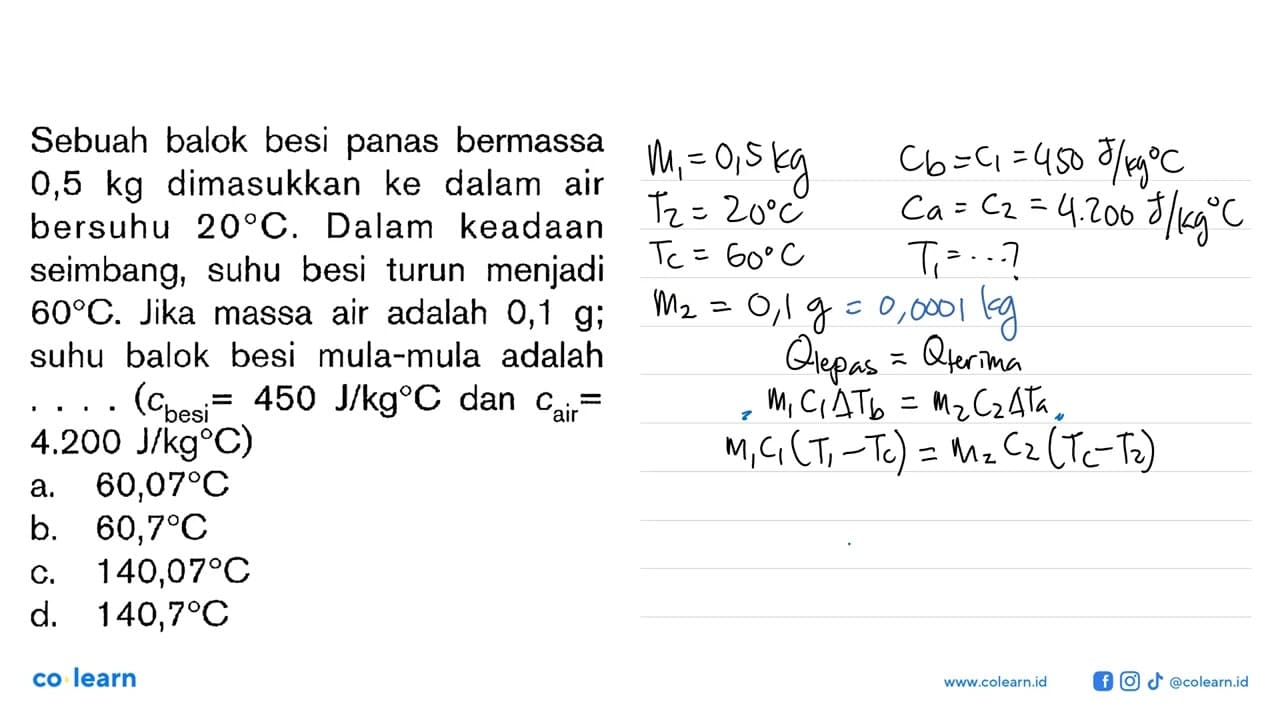 Sebuah balok besi panas bermassa
0,5 kg dimasukkan ke dalam air
bersuhu 20°C. Dalam keadaan
seimbang, suhu besi turun menjadi
60°C. Jika massa air adalah 0,1 g;
suhu balok besi mula-mula adalah
. . . . (c_besi = 450 J/kg°C dan c_air =
4.200 J/kg°C)
a. 60,07°C
b. 60,7°C
c. 140,07°C
d. 140,7°C
m₁ = 0,5 kg Cb = C₁ = 450 J/kg°C
T₂ = 20°C Ca = C₂ = 4.200 J/kg°C
Tc = 60°C T₁ = ...?
m₂ = 0,1 g = 0,0001 kg
Qlepas = Qterima
m₁ C₁ ΔTb = m₂ C₂ ΔTa
m₁ C₁ (T₁ - Tc) = m₂ C₂ (Tc - T₂)
co learn
www.colearn.id @colearn.id